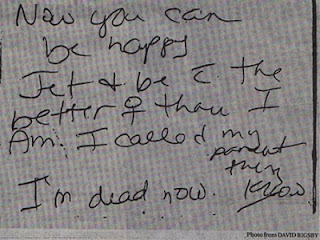 Now you can
be happy
Jet & be c̄ the
better ♀ than I
Am. I called my
parent
they
I'm dead now. know
Photo from DAVID RIGSBY